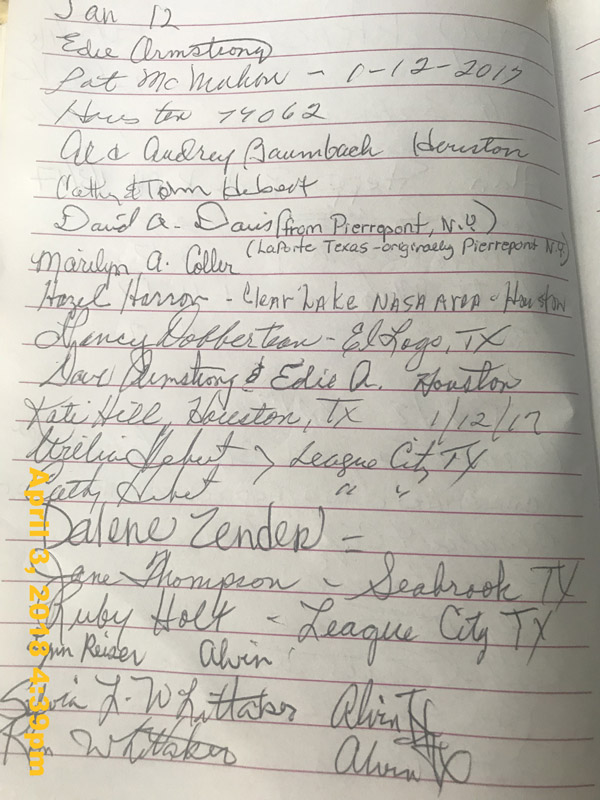 Jan 12
Edie Armstrong
Pat McMahon - 1-12-2017
Houston 77062
Al & Audrey Baumbach Houston
Cathy & Tom Hebert
David A. Davis (from Pierrepont, N.Y.)
(LaPorte Texas - originally Pierrepont N.Y.)
Marilyn A. Coller
Hazel Harron - Clear Lake NASA Area - Houston
Nancy Dobbertson - El Lago, TX
Dave Armstrong & Edie A. Houston
Kati Hill, Houston, TX 1/12/17
Hebert > League City TX
Cathy Hebert " "
Dalene Zender =
Jane Thompson - Seabrook TX
Ruby Holt - League City TX
Reiser Alvin
L. Whittaker Alvin TX
Whittaker Alvin TX
April 3, 2018 4:39pm